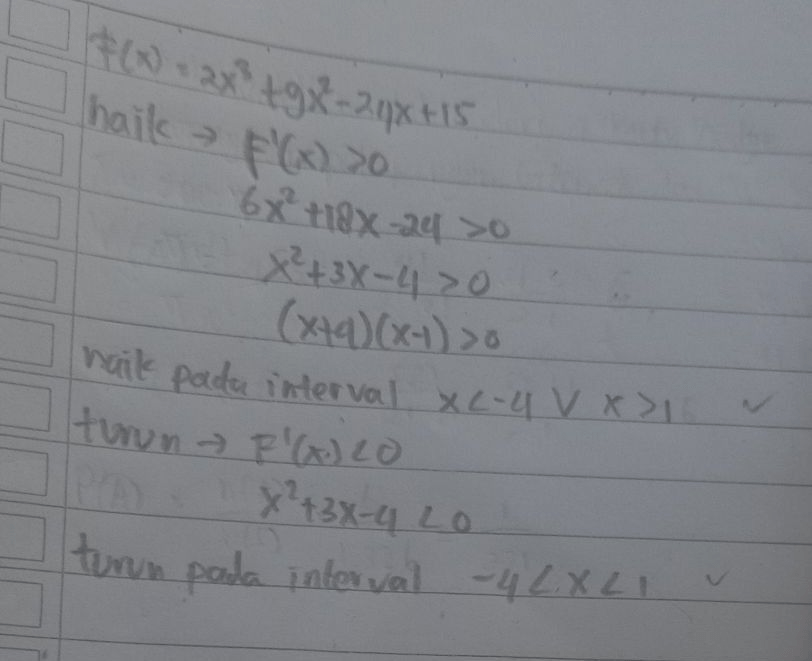 F(x) = 2x³ + 9x² - 24x + 15
naik → F'(x) > 0
6x² + 18x - 24 > 0
x² + 3x - 4 > 0
(x+4)(x-1) > 0
naik pada interval x < -4 ∨ x > 1 ✓
turun → F'(x) < 0
x² + 3x - 4 < 0
turun pada interval -4 < x < 1 ✓